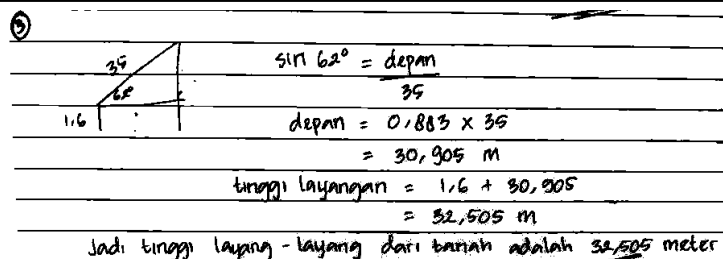 ③
35
62°
1,6
sin 62° = depan
35
depan = 0,883 x 35
= 30,905 m
tinggi layangan = 1,6 + 30,905
= 32,505 m
Jadi tinggi layang-layang dari tanah adalah 32,505 meter